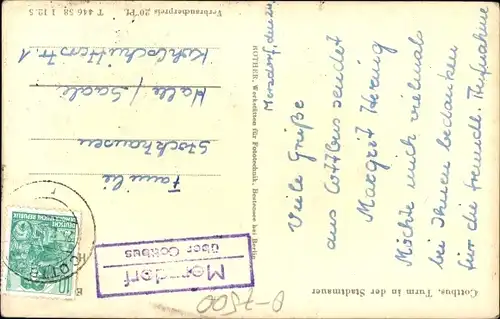 Merzdorf, den 24.
Viele Grüße
aus Cottbus sendet
Margrit Hering
Möchte mich vielmals
bei Ihnen bedanken
für die freundl. Aufnahme
Cottbus, Turm in der Stadtmauer
ROTHER, Werkstätten für Fototechnik, Beetzsee bei Berlin
Familie
Stockhausen
Halle / Saale
Kohlschütterstr. 1
Merzdorf
über Cottbus
0-7500
Verbraucherpreis 20 Pf.
T 446 58 1 12 5
COTTB
10
DEUTSCHE DEMOKRATISCHE REPUBLIK